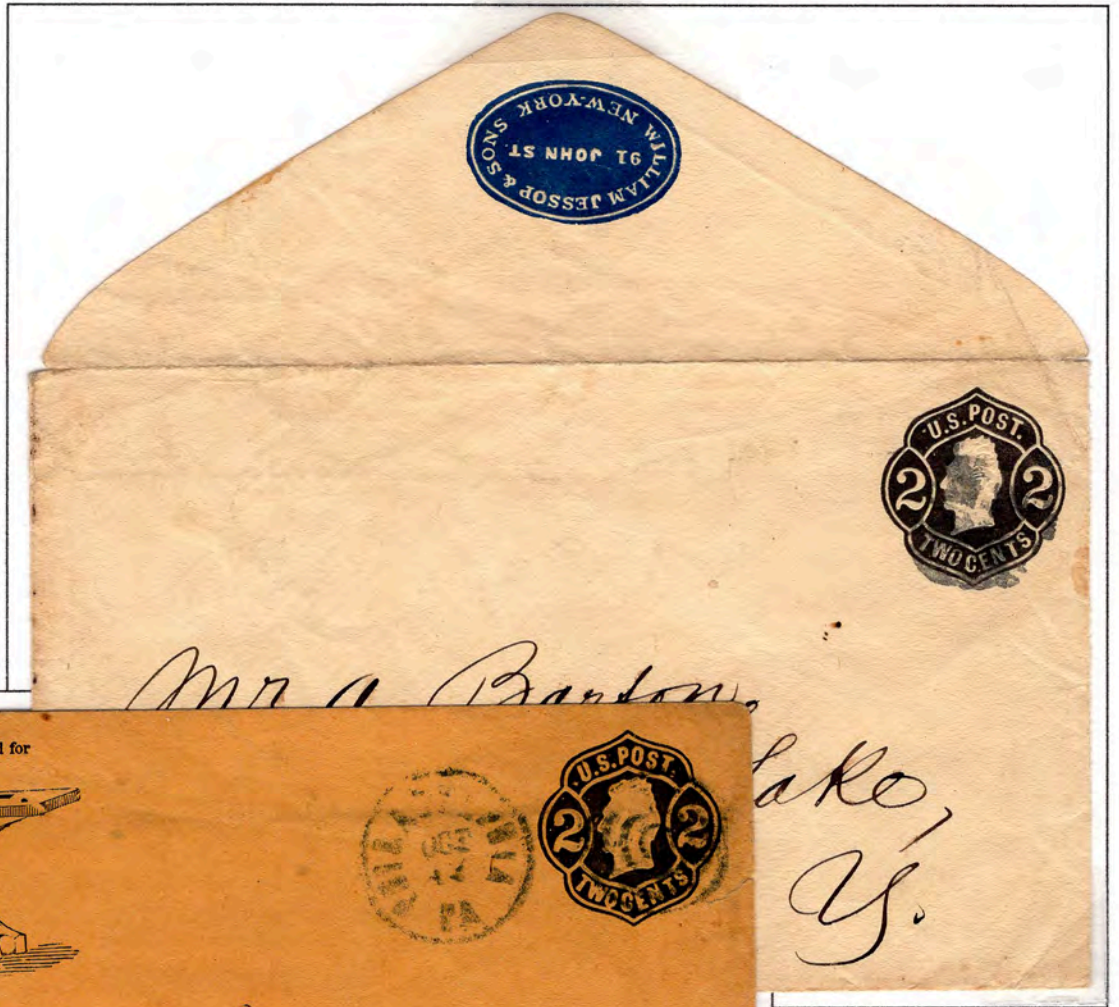 WILLIAM JESSOP & SONS
91 JOHN ST.
NEW-YORK
U.S. POST.
2 2
TWO CENTS
Mr A Barton,
Lake,
Y.
l for
PHILA
PA
U.S. POST.
2 2
TWO CENTS